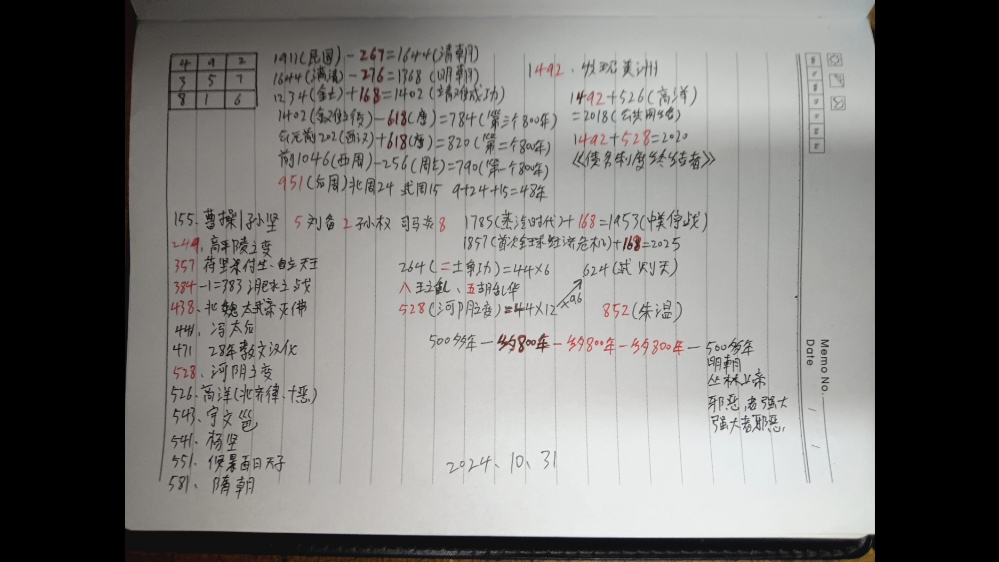 4 9 2
3 5 7
8 1 6
1911(民国)-267=1644(清朝)
1644(满清)-276=1368(明朝)
1234(金亡)+168=1402(靖难成功)
1402()-618(唐)=784(第三个800年)
公元前202(西汉)+618(唐)=820(第二个800年)
前1046(西周)-256(周亡)=790(第一个800年)
951(后周)北周24 武周15 9+24+15=48年
1492.发现美洲
1492+526(高洋)
=2018()
1492+528=2020
《债务制度终结者》
155.曹操|孙坚 5 刘备 2 孙权 司马炎 8
249.高平陵之变
357 苻坚杀付生.自立天王
384-1=383 淝水之战
438.北魏太武帝灭佛
441.冯太后
471 28年教文汉化
528.河阴之变
526.高洋(北齐律、十恶)
543.宇文邕
541.杨坚
551.侯景百日天子
581.隋朝
1785(蒸汽时代)+168=1953(中美停战)
1857(首次全球经济危机)+168=2025
264(二士争功)=44×6
624(武则天)
八王之乱、五胡乱华
528(河阴之变)=44×12
×96
852(朱温)
500多年-乡乡800年-乡乡800年-乡乡800年-500多年
明朝
丛林上帝
邪恶者强大
强大者邪恶.
2024、10、31
Memo No.
Date / /